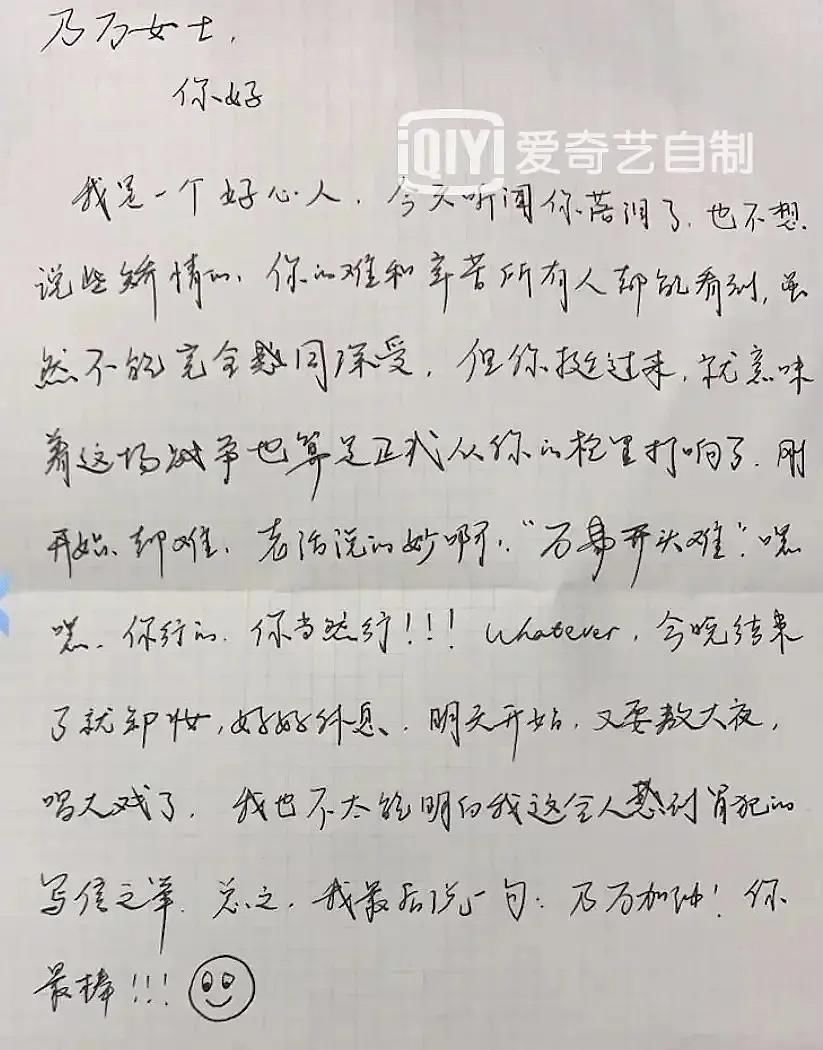 乃万女士,
你好
iQIYI 爱奇艺自制
我是一个好心人. 今天听闻你落泪了. 也不想
说些矫情的, 你的难和辛苦所有人都能看到, 虽
然不能完全感同深受. 但你挺过来, 就意味
着这场战争也算是正式从你的枪里打响了. 刚
开始、都难. 老话说的妙啊, “万事开头难”. 嘿
嘿. 你行的. 你当然行!!! Whatever, 今晚结束
了就卸妆, 好好休息、. 明天开始, 又要熬大夜,
唱大戏了. 我也不太能明白我这令人感到冒犯的
写信之举. 总之, 我最后说一句: 乃万加油! 你
最棒!!!